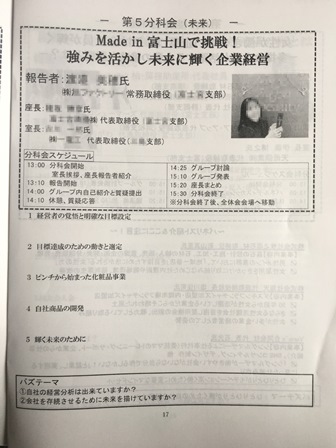 － 第５分科会（未来） －
Made in 富士山で挑戦！
強みを活かし未来に輝く企業経営
報告者：
常務取締役（富士宮支部）
座長：
代表取締役（富士宮支部）
室長：
代表取締役（支部）
分科会スケジュール
13:00 分科会開始
室長挨拶、座長報告者紹介
13:10 報告開始
14:00 グループ内自己紹介と質疑提出
14:10 休憩、質疑応答
14:25 グループ討論
15:10 グループ発表
15:20 座長まとめ
15:30 分科会終了
※分科会終了後、全体会会場へ移動
1 経営者の覚悟と明確な目標設定
2 目標達成のための動きと選定
3 ピンチから始まった化粧品事業
4 自社商品の開発
5 輝く未来のために
バズテーマ
①自社の経営分析は出来ていますか？
②会社を存続させるために未来を描けていますか？
17